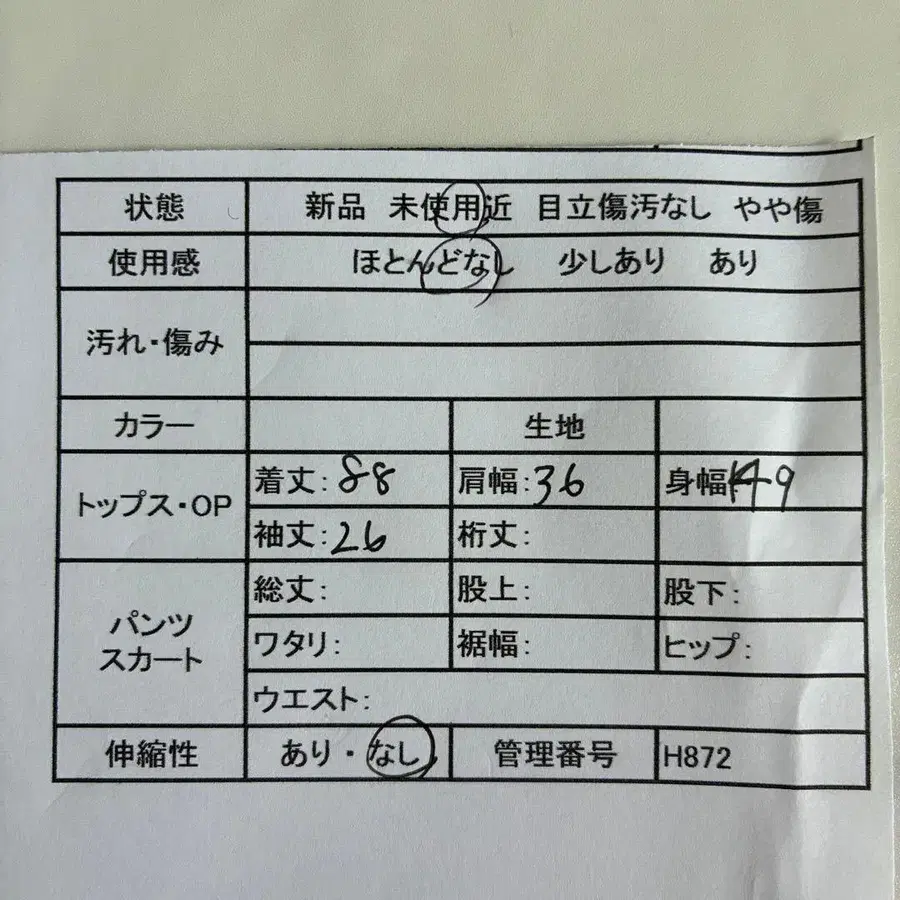 状態 新品 未使用近 目立傷汚なし やや傷
使用感 ほとんどなし 少しあり あり
汚れ・傷み
カラー 生地
トップス・OP
着丈: 88 肩幅: 36 身幅 49
袖丈: 26 裄丈:
パンツ
スカート
総丈: 股上: 股下:
ワタリ: 裾幅: ヒップ:
ウエスト:
伸縮性 あり・なし 管理番号 H872